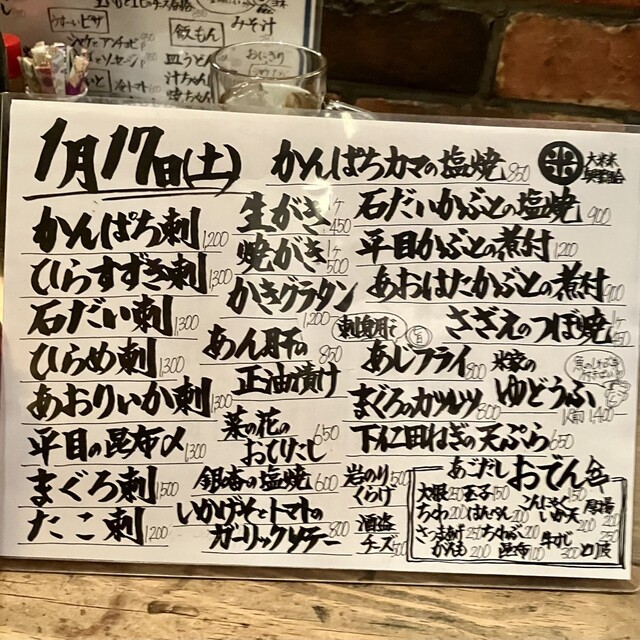 うすーいピザ
飯もん
みそ汁
おにぎり
皿うどん
冷トマト
1月17日(土)
かんぱち刺 1,200
ひらすずき刺 1,300
石だい刺 1,300
ひらめ刺 1,300
あおりいか刺 1,300
平目の昆布〆 1,300
まぐろ刺 1,500
たこ刺 1,200
かんぱちカマの塩焼 850
生がき 1ケ 450
焼がき 1ケ 500
かきグラタン 1,200
あん肝の
正油漬け 850
菜の花の
おてりこし 650
銀杏の塩焼 600
いかげそとトマトの
ガーリックソテー 800
石だいかぶとの塩焼 900
平目かぶとの煮付 1,200
あおはたかぶとの煮付 900
さざえのつぼ焼
刺身用で
旨
あじフライ 800
まぐろのカツレツ
米家の
ゆどうふ
1人前 1,400
下仁田ねぎの天ぷら 650
岩のり
くらげ 500
酒盗
チーズ 500
あごだしおでん
大根 玉子 150 こんにゃく 150 厚揚
ちくわ 200 はんぺん 200 いか天 200
さつまあげ 250 ちくわぶ 200 牛すじ
がんも 200 昆布 100
米